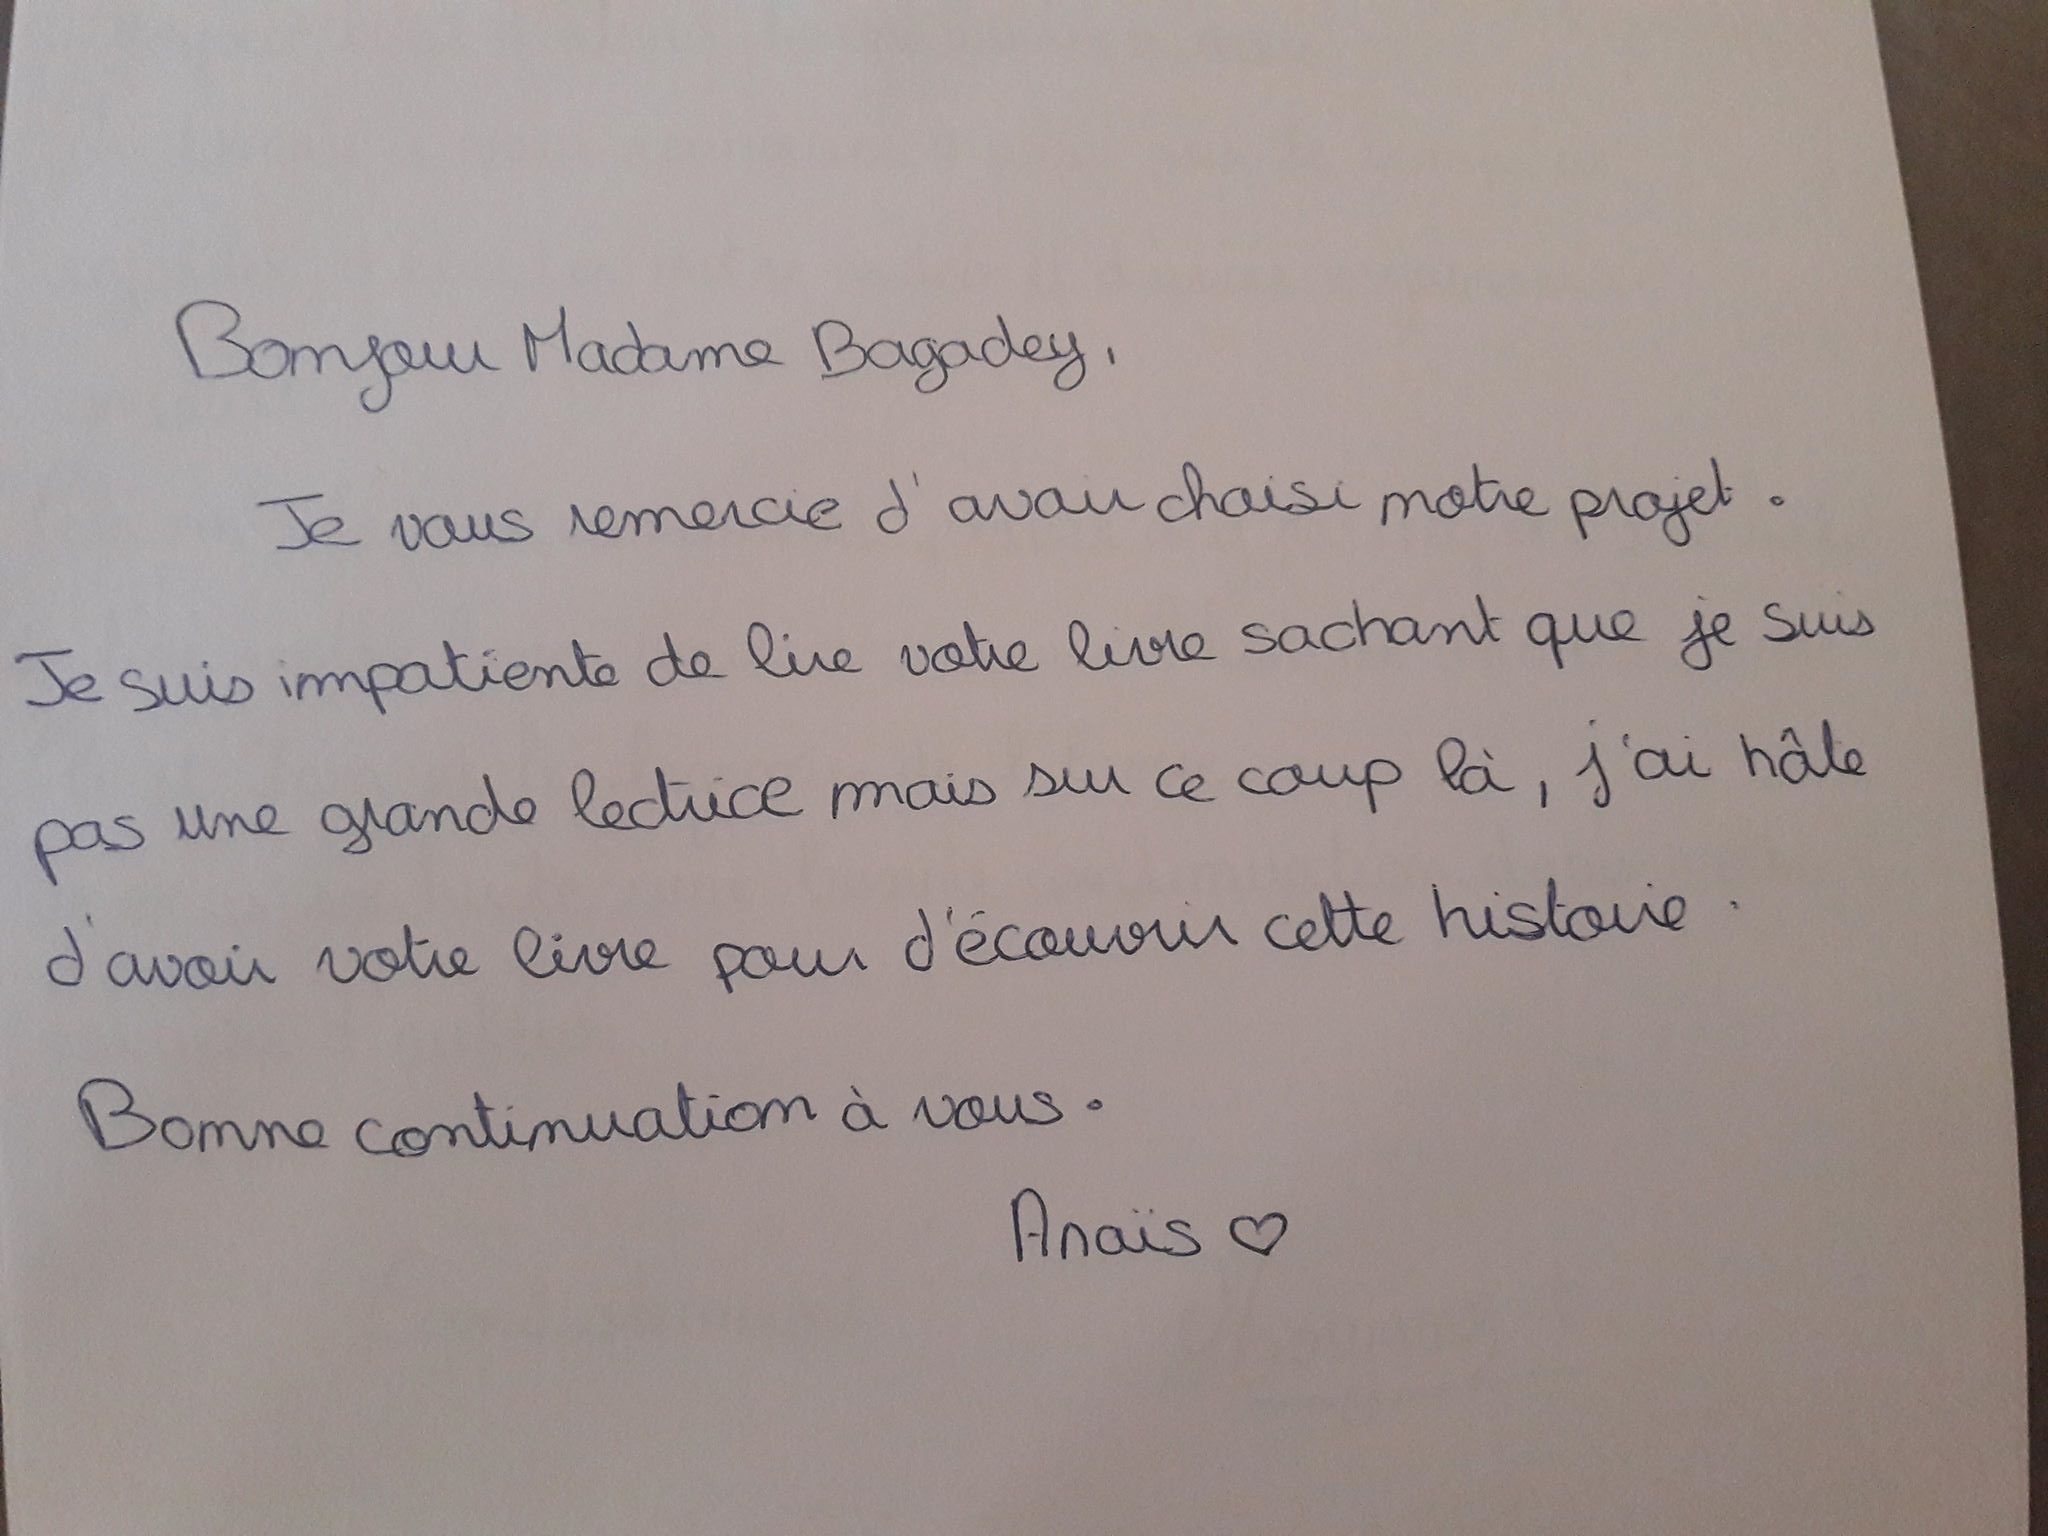 Bonjour Madame Bagadey,
Je vous remercie d'avoir choisi notre projet.
Je suis impatiente de lire votre livre sachant que je suis
pas une grande lectrice mais sur ce coup là, j'ai hâte
d'avoir votre livre pour d'écouvrir cette histoire.
Bonne continuation à vous.
Anaïs ♡